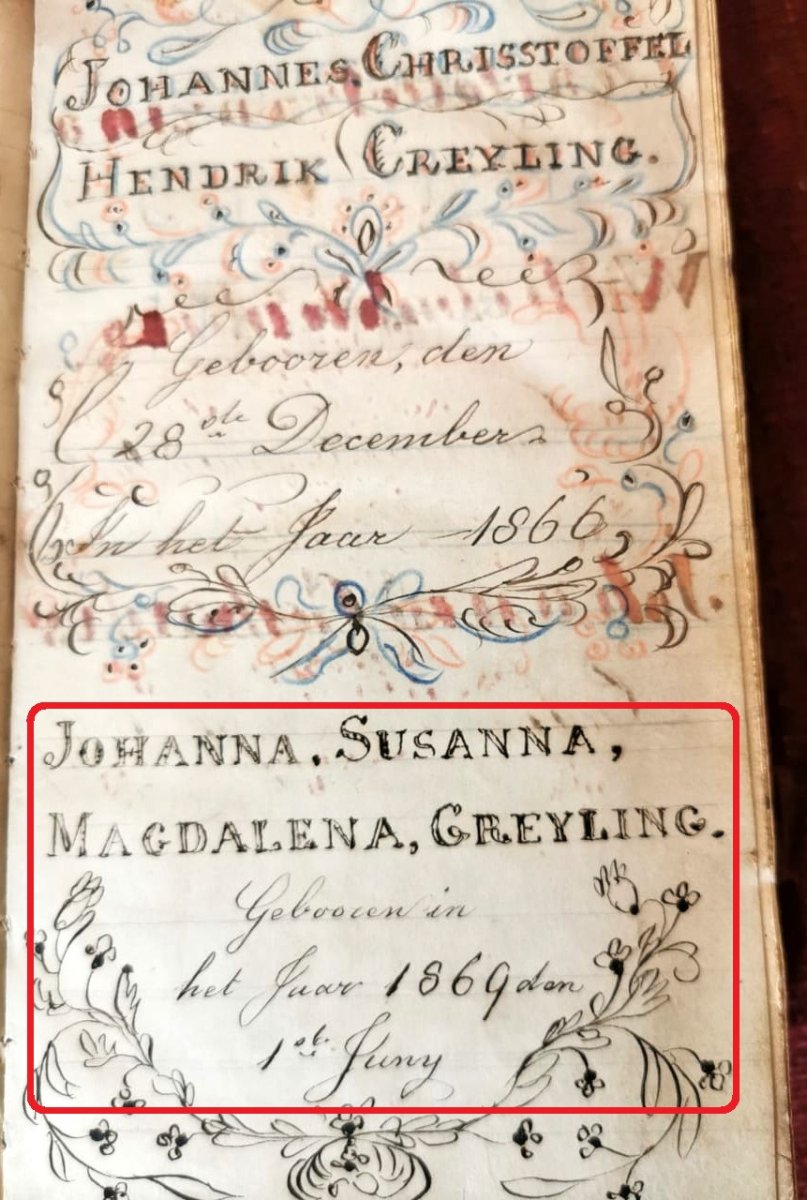 JOHANNES. CHRISSTOFFEL
HENDRIK GREYLING.
Gebooren, den
28ste December
In het Jaar 1866,
JOHANNA. SUSANNA,
MAGDALENA, GREYLING.
Gebooren in
het Jaar 1869 den
1ste Juny